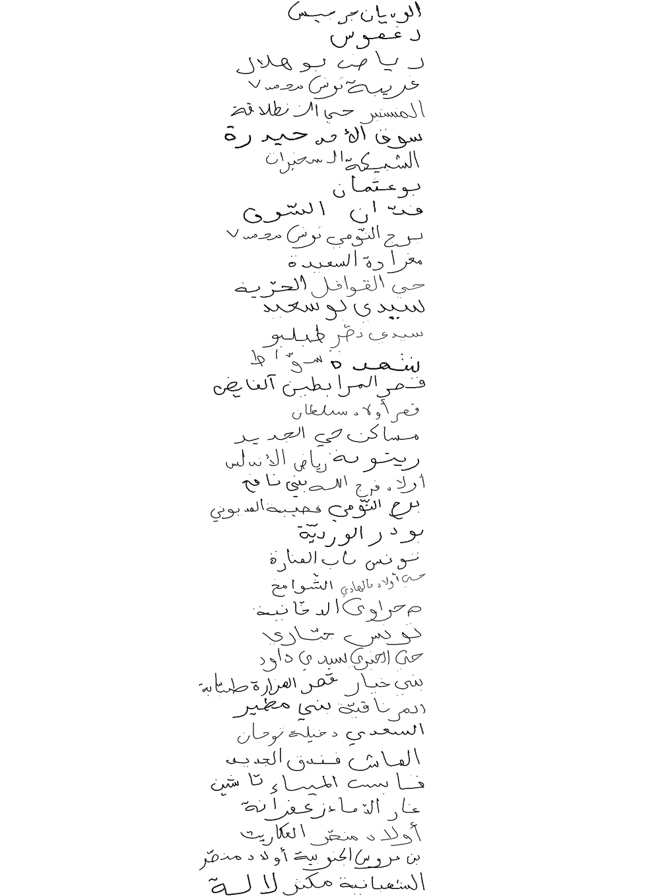 الرديان جرجيس
دغفوس
رياض بوهلال
غريبة تونس محمد ٧
المنستير حي الزنطلاقة
سوق الأحد حيدرة
الشبيكة السخيرات
بوعثمان
فدّان السّوق
برج التّومي تونس محمد ٧
مغرادة السعيدة
حي القوافل الحرّية
سيدي بوسعيد
سيدي نصر طبلبو
شهدة سوّاط
قصر المرابطين آلفايض
قصر أولاد سلطان
مساكن حي الجديد
زيتونة رياض الأندلس
أولاد فرج الله بني نافع
برج التّومي قصيبة المديوني
بودر الورديّة
تونس باب المنارة
حي أولاد بالهادي الشّوامخ
صحراوي الدخّانية
تونس
حي الخبزي سيدي داود
بني خيار قصر المزارة طبابة
المرناقيّة بني مطير
السعدي دخيلة توجان
الماش فندق الجديد
قابس الميساء تاشين
غار الدّماء زعفرانة
أولاد منصّر العكاريت
بن عروس الجنوبية أولاد منصّر
الشعبانية مكنز لالة